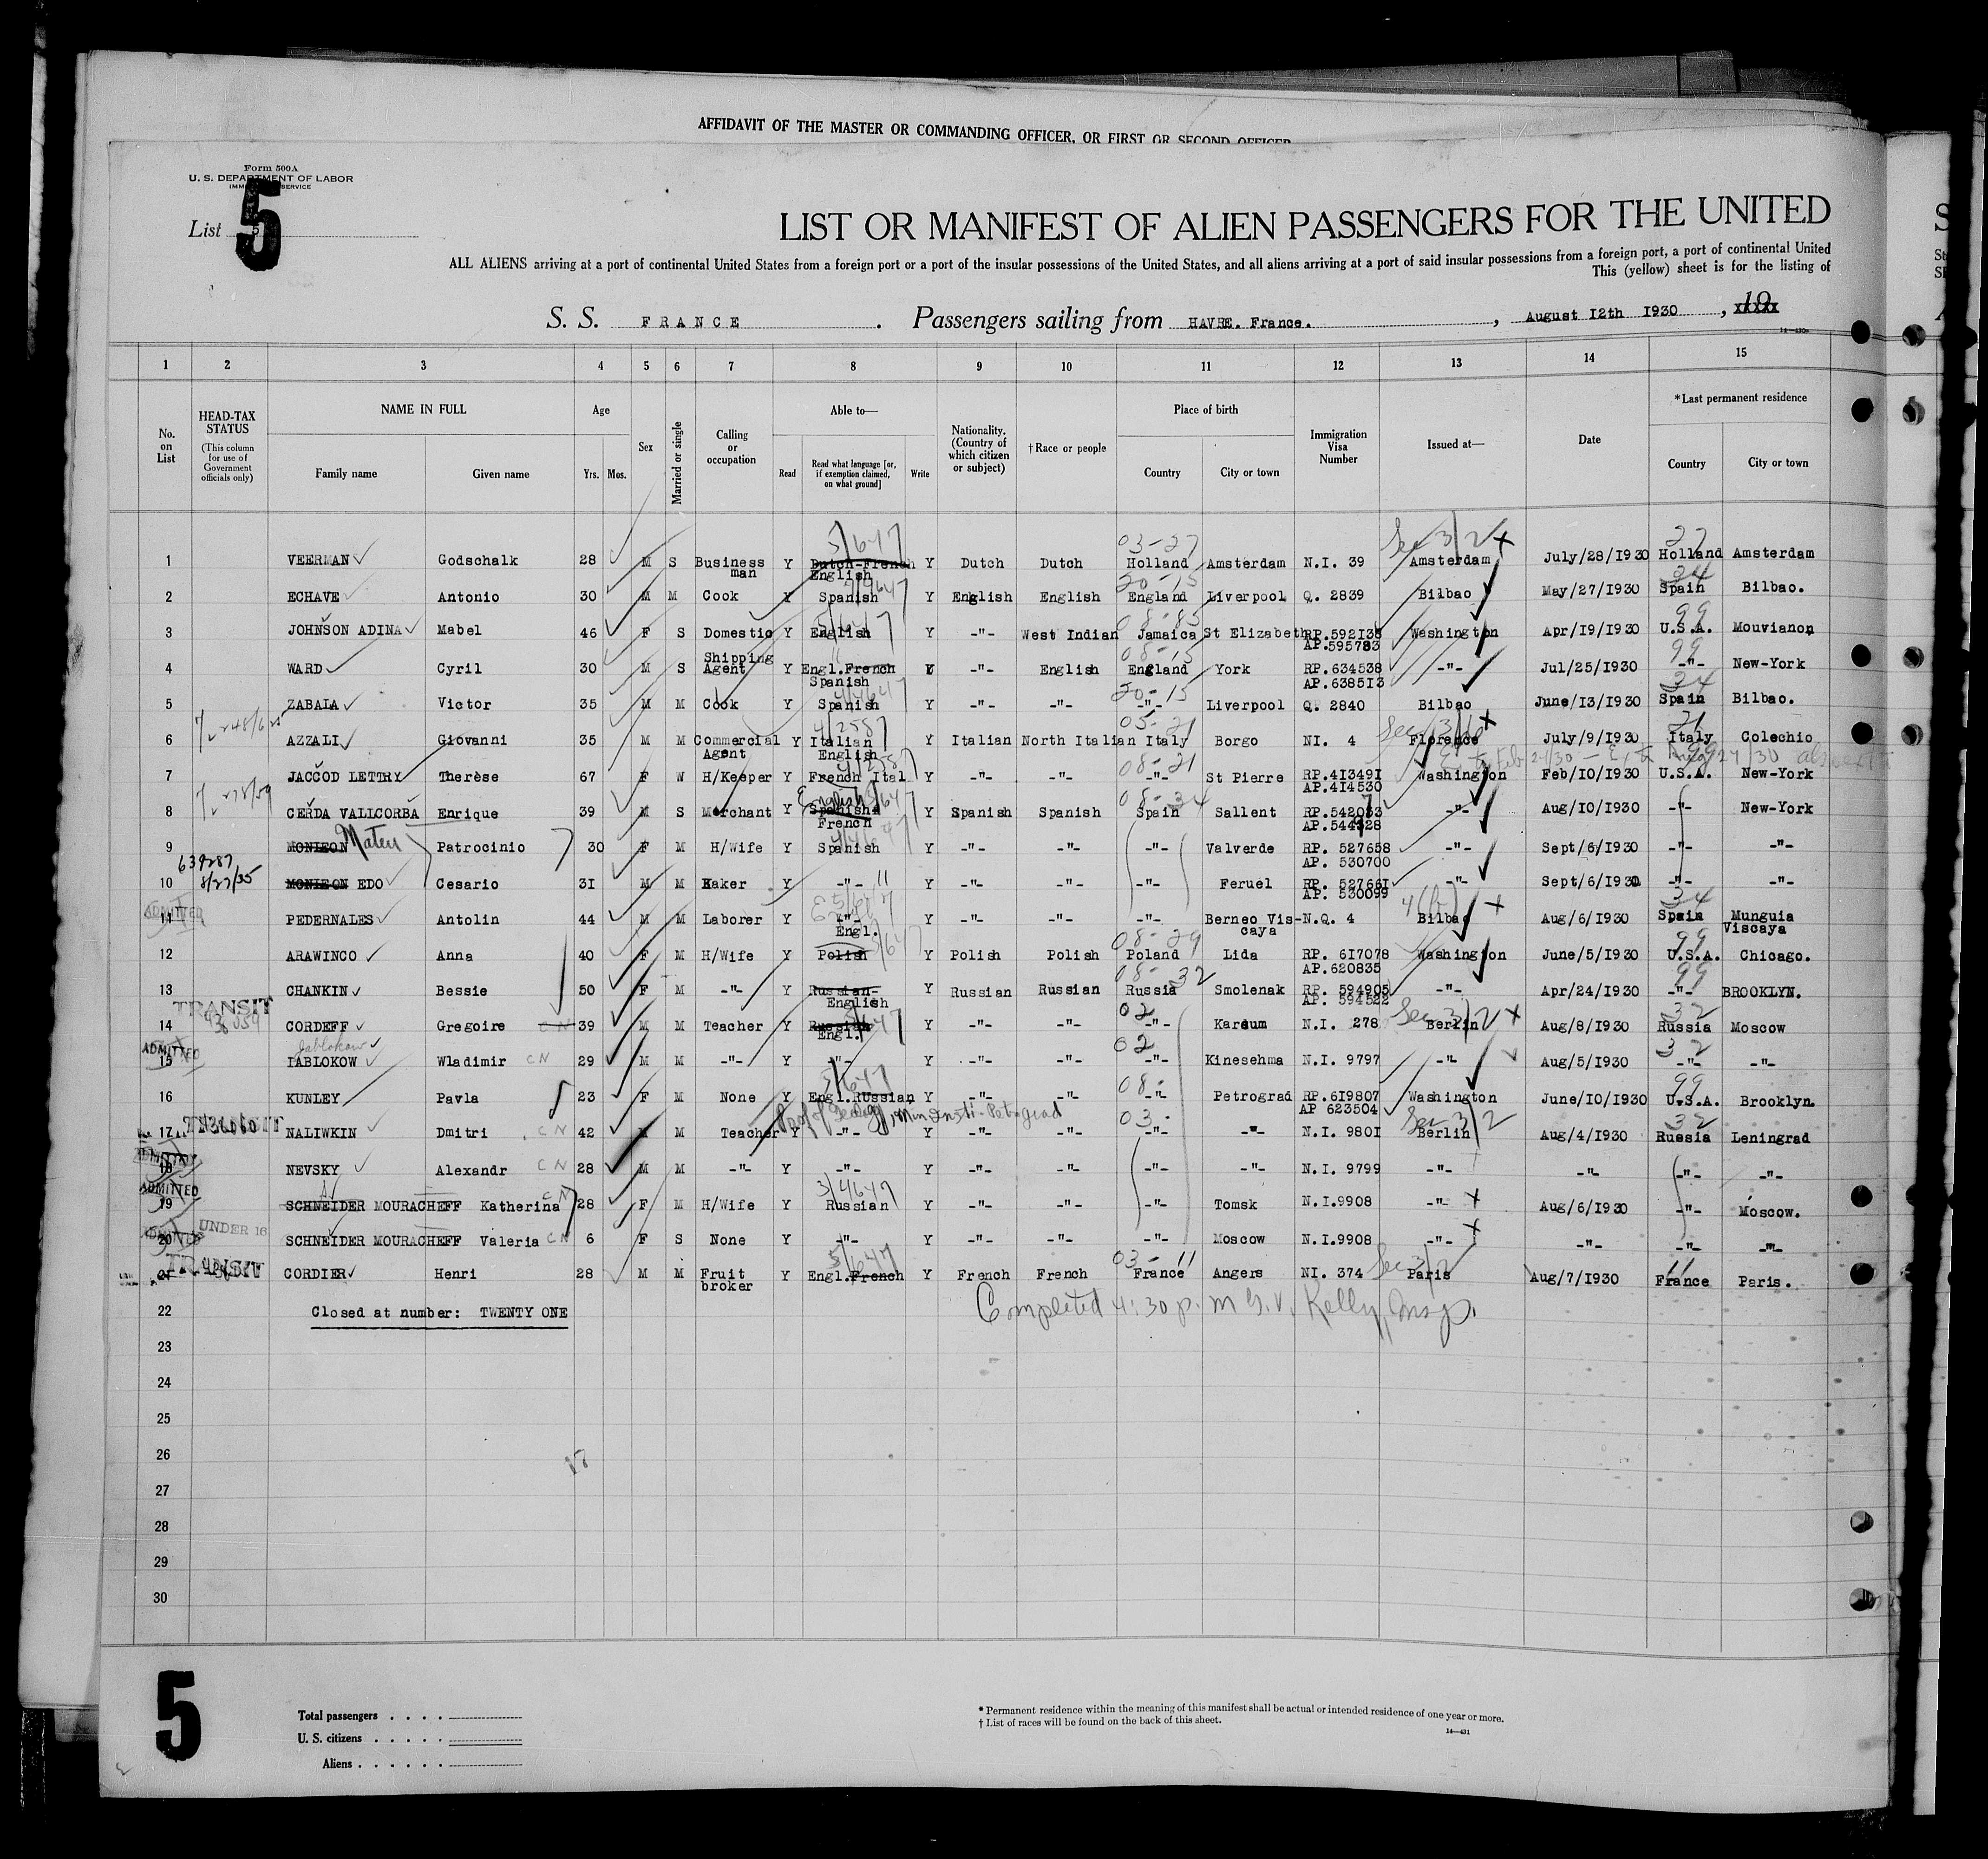 AFFIDAVIT OF THE MASTER OR COMMANDING OFFICER, OR FIRST OR SECOND OFFICER
Form 500A
U. S. DEPARTMENT OF LABOR
List 5
5
LIST OR MANIFEST OF ALIEN PASSENGERS FOR THE UNITED
ALL ALIENS arriving at a port of continental United States from a foreign port or a port of the insular possessions of the United States, and all aliens arriving at a port of said insular possessions from a foreign port, a port of continental United
This (yellow) sheet is for the listing of
S. S. FRANCE. Passengers sailing from HAVRE. France., August I2th I930, 19
1 2 3 4 5 6 7 8 9 10 11 12 13 14 15
No. on List
HEAD-TAX STATUS
(This column for use of Government officials only)
NAME IN FULL
Family name Given name
Age
Yrs. Mos.
Sex
Married or single
Calling or occupation
Able to—
Read
Read what language [or, if exemption claimed, on what ground]
Write
Nationality. (Country of which citizen or subject)
†Race or people
Place of birth
Country City or town
Immigration Visa Number
Issued at—
Date
*Last permanent residence
Country City or town
5/647 03-27 Sec 3/2 X 27
1 VEERMAN Godschalk 28 M S Business man Y Dutch-French English Y Dutch Dutch Holland Amsterdam N.I. 39 Amsterdam July/28/I930 Holland Amsterdam
20-15 34
2 ECHAVE Antonio 30 M M Cook Y Spanish Y English English England Liverpool Q. 2839 Bilbao May/27/I930 Spain Bilbao.
08-85 99
3 JOHNSON ADINA Mabel 46 F S Domestic Y English Y -"- West Indian Jamaica St Elizabeth RP.592I38 AP.595783 Washington Apr/I9/I930 U.S.A. Mouvianon
08-15 99
4 WARD Cyril 30 M S Shipping Agent Y Engl.French Spanish Y -"- English England York RP.634538 AP.6385I3 -"- Jul/25/I930 -"- New-York
20-15 34
5 ZABALA Victor 35 M M Cook Y Spanish Y -"- -"- -"- Liverpool Q. 2840 Bilbao June/I3/I930 Spain Bilbao.
05-21 21
6 AZZALI Giovanni 35 M M Commercial Agent Y Italian English Y Italian North Italian Italy Borgo NI. 4 Florence July/9/I930 Italy Colechio
08-21 99
7 JACCOD LETTRY Therèse 67 F W H/Keeper Y French Ital. Y -"- -"- -"- St Pierre RP.4I349I AP.4I4530 Washington Feb/I0/I930 U.S.A. New-York
08-34
8 CERDA VALLCORBA Enrique 39 M S Merchant Y English Spanish French Y Spanish Spanish Spain Sallent RP.542033 -"- Aug/I0/I930 -"- New-York
9 MONIEON Mateu Patrocinio 30 F M H/Wife Y Spanish Y -"- -"- -"- Valverde RP. 527658 AP. 530700 -"- Sept/6/I930 -"- -"-
639287
8/27/35
10 MONIEON EDO Cesario 3I M M Baker Y -"- Y -"- -"- -"- Feruel RP. 52766I AP. 530099 -"- Sept/6/I930 -"- -"-
ADMITTED 34
11 PEDERNALES Antolin 44 M M Laborer Y -"- Engl. Y -"- -"- -"- Berneo Vis-caya N.Q. 4 Bilbao Aug/6/I930 Spain Munguia Viscaya
08-29 99
12 ARAWINCO Anna 40 F M H/Wife Y Polish Y Polish Polish Poland Lida RP. 6I7078 AP.620835 Washington June/5/I930 U.S.A. Chicago.
08-32 99
13 CHANKIN Bessie 50 F M -"- Y Russian- English Y Russian Russian Russia Smolenak RP. 594905 AP. 594522 -"- Apr/24/I930 -"- BROOKLYN.
TRANSIT 02 Sec 3/2 X 32
14 CORDEFF Gregoire 39 M M Teacher Y Russian Engl. Y -"- -"- -"- Kardum N.I. 278 Berlin Aug/8/I930 Russia Moscow
ADMITTED Jablokow 02 32
15 IABLOKOW Wladimir CN 29 M M -"- Y -"- Y -"- -"- -"- Kinesehma N.I. 9797 -"- Aug/5/I930 -"- -"-
5/647 08- 99
16 KUNLEY Pavla 23 F M None Y Engl.Russian Y -"- -"- -"- Petrograd RP.6I9807 AP 623504 Washington June/I0/I930 U.S.A. Brooklyn.
Prof of Geology, Min. Insti-Petrograd 03- Sec 3/2 32
17 NALIWKIN Dmitri CN 42 M M Teacher Y -"- Y -"- -"- -"- -"- N.I. 980I Berlin Aug/4/I930 Russia Leningrad
ADMITTED
18 NEVSKY Alexandr CN 28 M M -"- Y -"- Y -"- -"- -"- -"- N.I. 9799 -"- -"- -"- -"-
ADMITTED 3/4647
19 SCHNEIDER MOURACHEFF Katherina CN 28 F M H/Wife Y Russian Y -"- -"- -"- Tomsk N.I.9908 -"- X Aug/6/I930 -"- Moscow.
ADMITTED UNDER 16
20 SCHNEIDER MOURACHEFF Valeria CN 6 F S None Y -"- Y -"- -"- -"- Moscow N.I.9908 -"- X -"- -"- -"-
TRANSIT 5/647 03-11 Sec 3/2 11
21 CORDIER Henri 28 M M Fruit broker Y Engl.French Y French French France Angers NI. 374 Paris Aug/7/I930 France Paris.
22 Closed at number: TWENTY ONE
Completed 4:30 p.m G.V. Kelly, Insp.
23
24
25
26
27
28
29
30
17
5
Total passengers
U. S. citizens
Aliens
* Permanent residence within the meaning of this manifest shall be actual or intended residence of one year or more.
† List of races will be found on the back of this sheet.
14—431